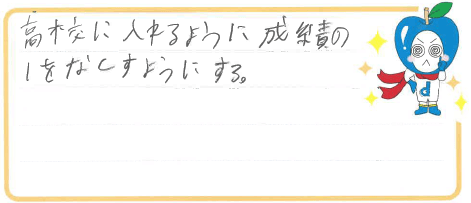 高校に入れるように成績の
1をなくすようにする。
d